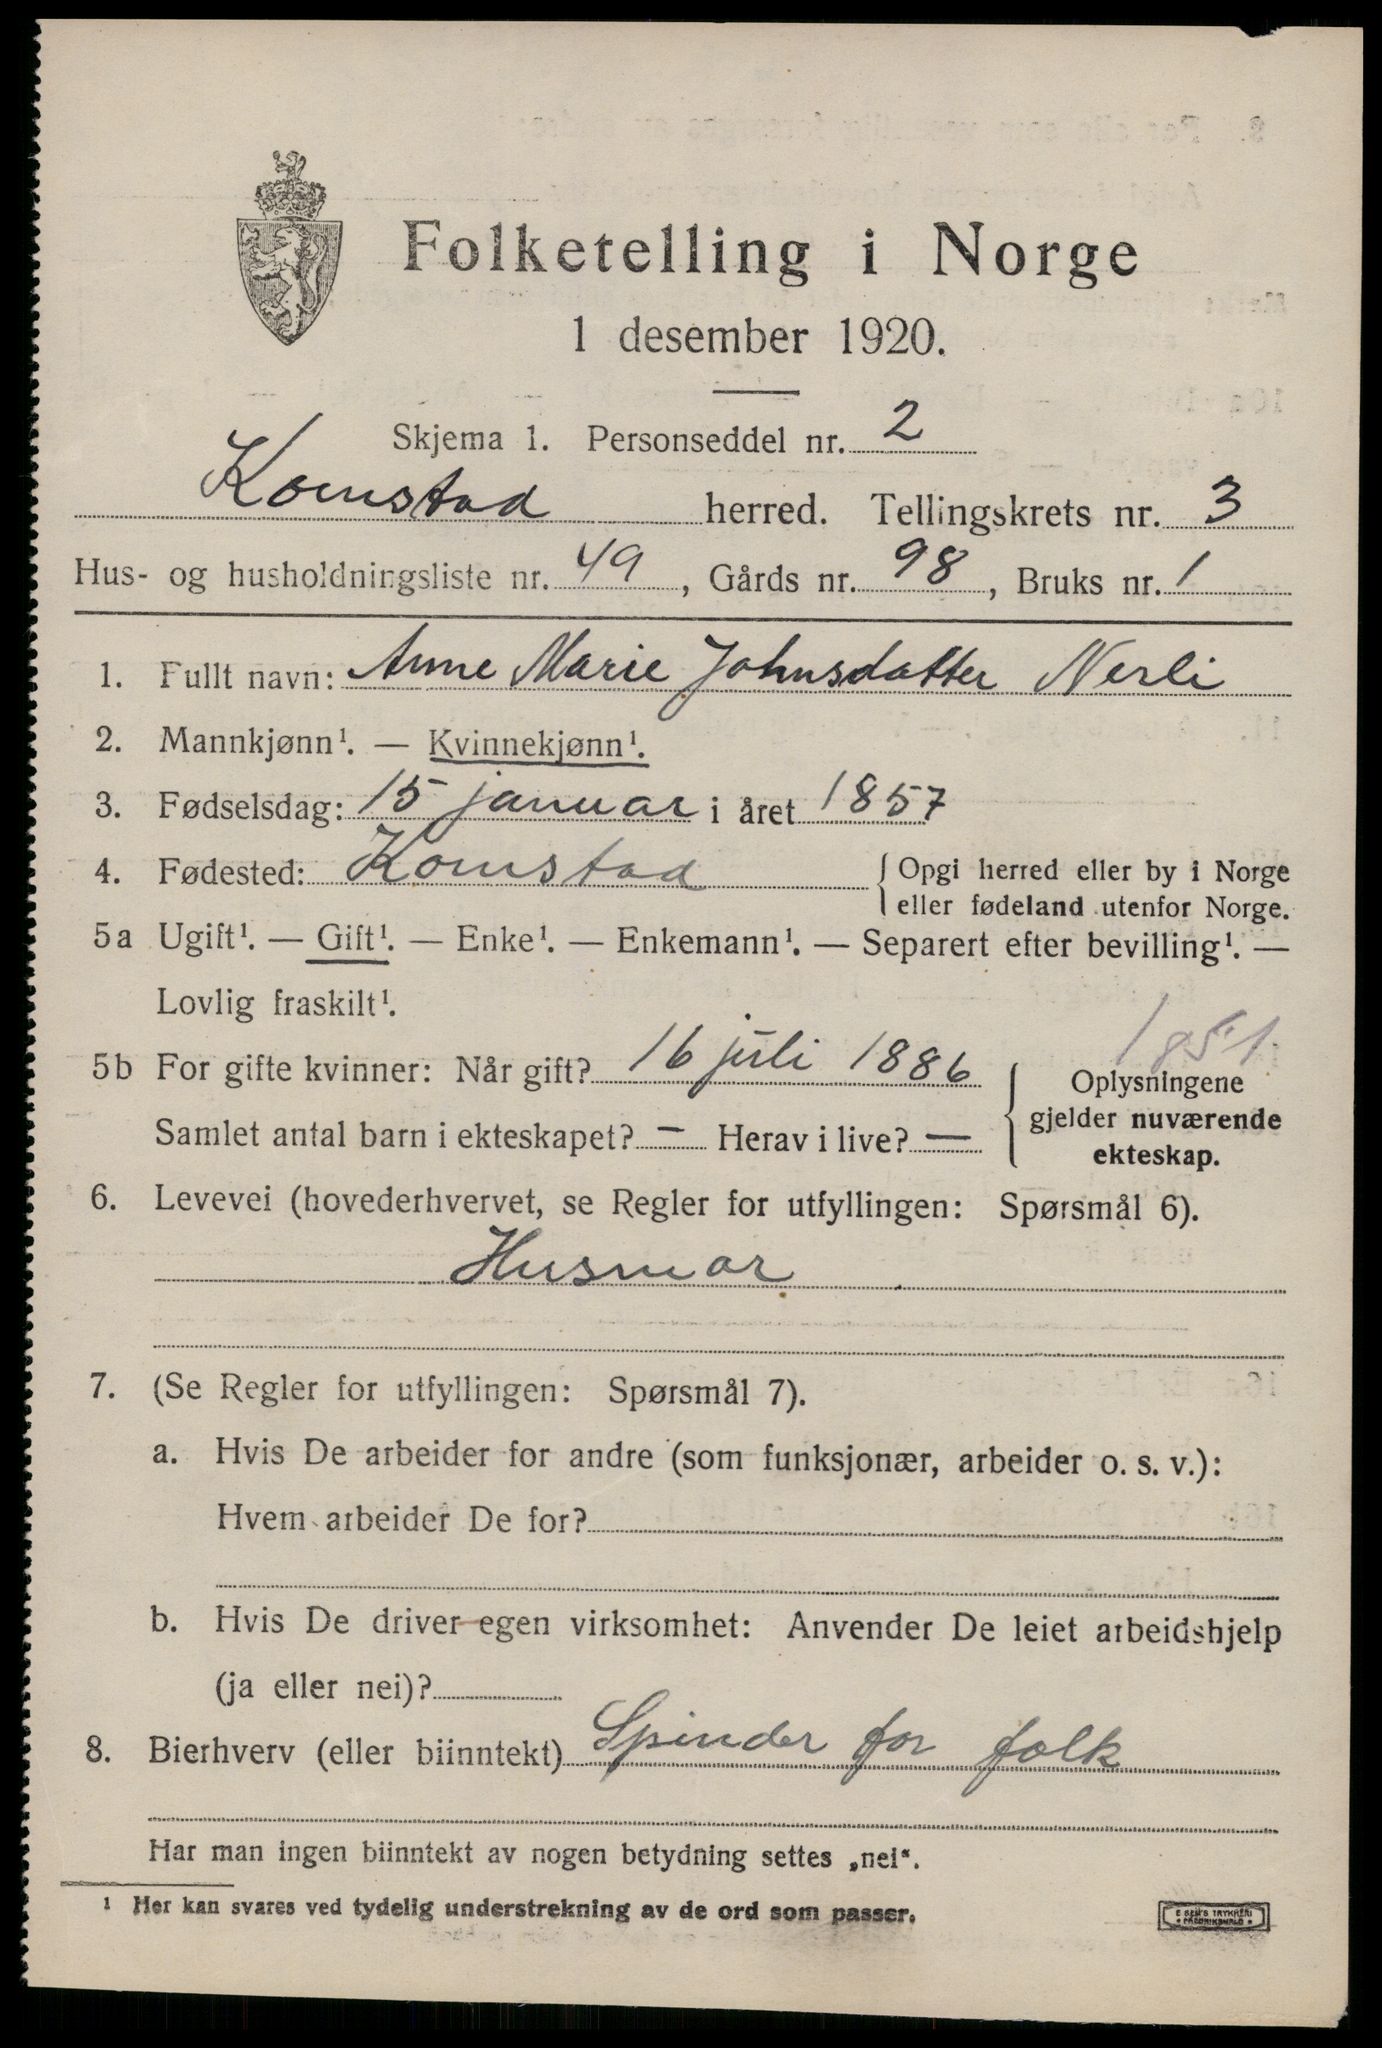 Folketelling i Norge
1 desember 1920.
Skjema 1. Personseddel nr. 2
Kornstad herred. Tellingskrets nr. 3
Hus- og husholdningsliste nr. 49, Gårds nr. 98, Bruks nr. 1
1. Fullt navn: Anne Marie Johnsdatter Nerli
2. Mannkjønn¹. — Kvinnekjønn¹.
3. Fødselsdag: 15 januar i året 1857
4. Fødested: Kornstad { Opgi herred eller by i Norge
eller fødeland utenfor Norge.
5a Ugift¹. — Gift¹. — Enke¹. — Enkemann¹. — Separert efter bevilling¹. —
Lovlig fraskilt¹.
1851
5b For gifte kvinner: Når gift? 16 juli 1886 { Oplysningene
gjelder nuværende
Samlet antal barn i ekteskapet? — Herav i live? —
ekteskap.
6. Levevei (hovederhvervet, se Regler for utfyllingen: Spørsmål 6).
Husmor
7. (Se Regler for utfyllingen: Spørsmål 7).
a. Hvis De arbeider for andre (som funksjonær, arbeider o. s. v.):
Hvem arbeider De for?
b. Hvis De driver egen virksomhet: Anvender De leiet arbeidshjelp
(ja eller nei)?
8. Bierhverv (eller biinntekt) Spinder for folk
Har man ingen biinntekt av nogen betydning settes „nei“.
¹ Her kan svares ved tydelig understrekning av de ord som passer.
E SEM'S TRYKKERI
FREDRIKSHALD